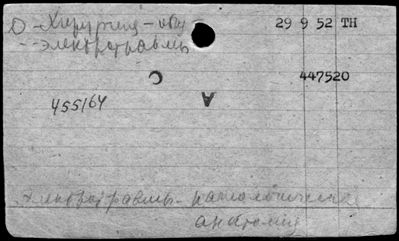 О-Хирургия-общ 29 9 52 TH
--электротравмы
С 447520
455164 А
Электротравмы-патологическая
анатомия